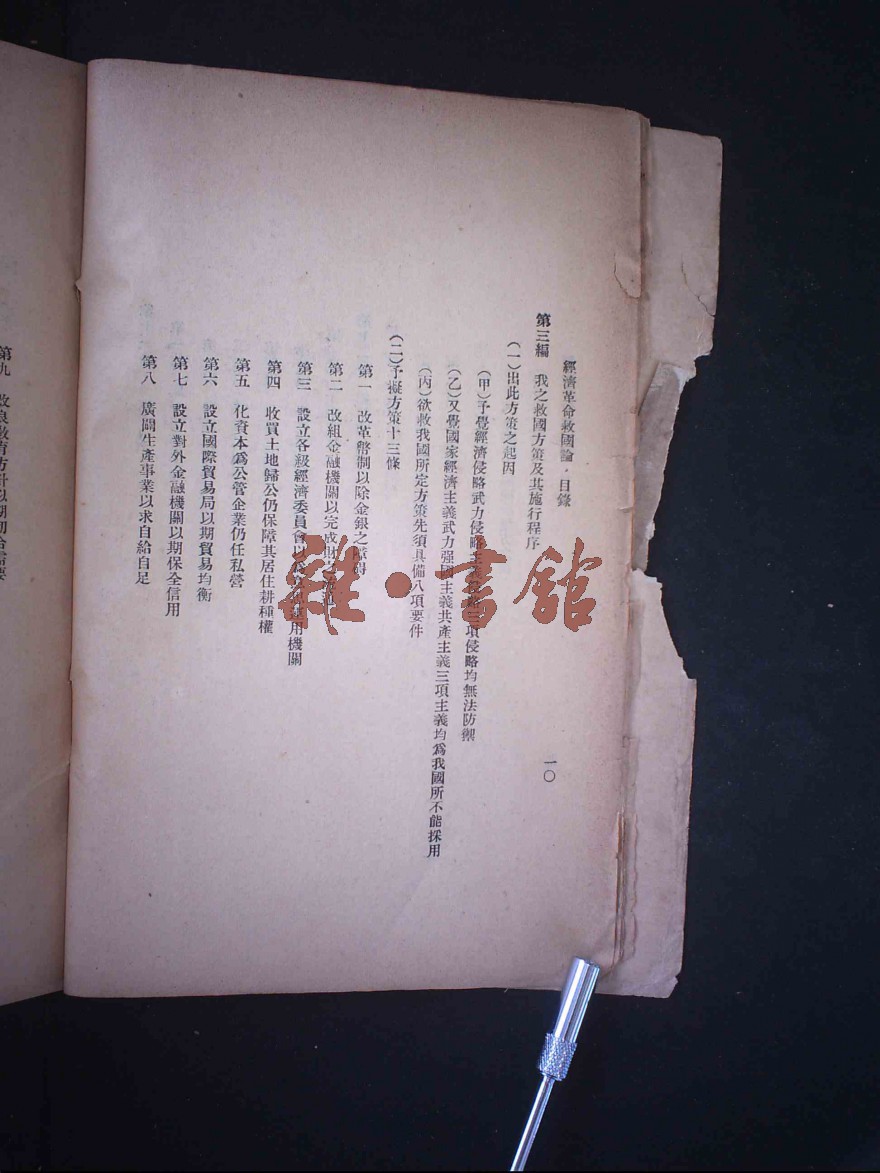 經濟革命救國論·目錄
一〇
第三編 我之救國方策及其施行程序
(一)出此方策之起因
(甲)予覺經濟侵略武力侵略主義侵略三項侵略均無法防禦
(乙)又覺國家經濟主義武力强國主義共產主義三項主義均爲我國所不能採用
(丙)欲救我國所定方策先須具備八項要件
(二)予擬方策十三條
第一 改革幣制以除金銀之障碍
第二 改組金融機關以完成財
第三 設立各級經濟委員會以 運用機關
第四 收買土地歸公仍保障其居住耕種權
第五 化資本爲公管企業仍任私營
第六 設立國際貿易局以期貿易均衡
第七 設立對外金融機關以期保全信用
第八 廣闢生產事業以求自給自足
第九 改良教育方針以期切合需要
雜·書館